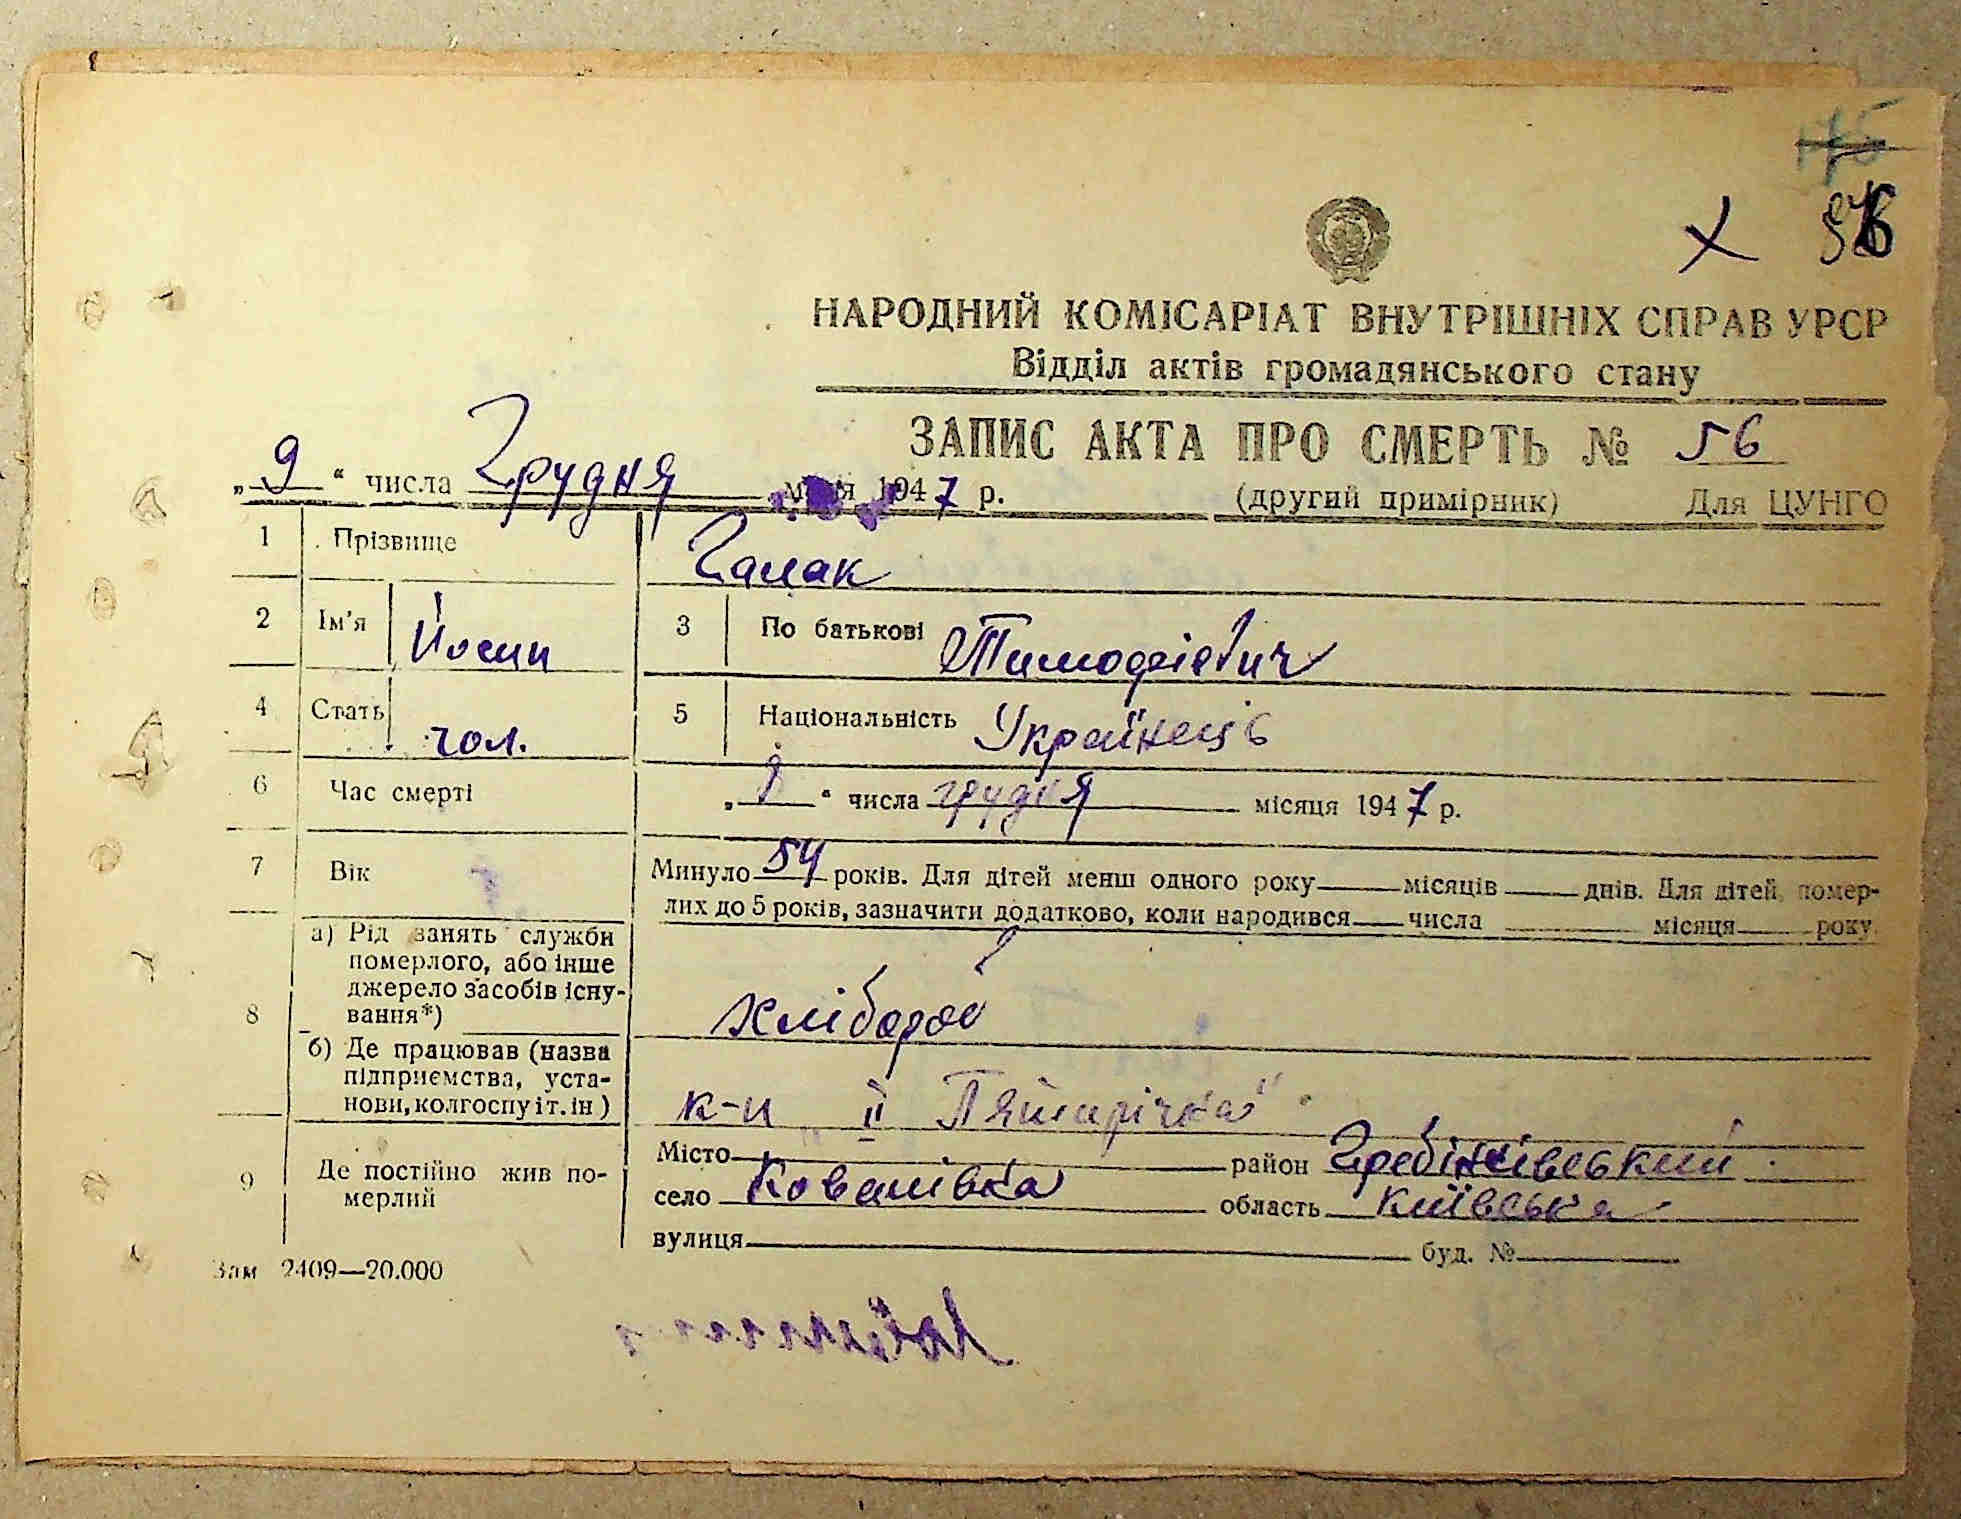 175
х 56
НАРОДНИЙ КОМІСАРІАТ ВНУТРІШНІХ СПРАВ УРСР
Відділ актів громадянського стану
ЗАПИС АКТА ПРО СМЕРТЬ № 56
„9“ числа Грудня м-ця 1947 р. (другий примірник) Для ЦУНГО
1 Прізвище Галак
2 Ім'я Йосип 3 По батькові Тимофієвич
4 Стать чол. 5 Національність Українець
6 Час смерті „8“ числа грудня місяця 1947 р.
7 Вік Минуло 54 років. Для дітей менш одного року місяців днів. Для дітей, помер-
лих до 5 років, зазначити додатково, коли народився числа місяця року
8 а) Рід занять служби
померлого, або інше
джерело засобів існу-
вання*) хлібороб
б) Де працював (назва
підприємства, уста-
нови, колгоспу і т. ін) к-п „ІІ Пятирічка"
9 Де постійно жив по-
мерлий
Місто район Гребінківський
село Ковалівка область Київська
вулиця буд. №
Зам 2409—20.000